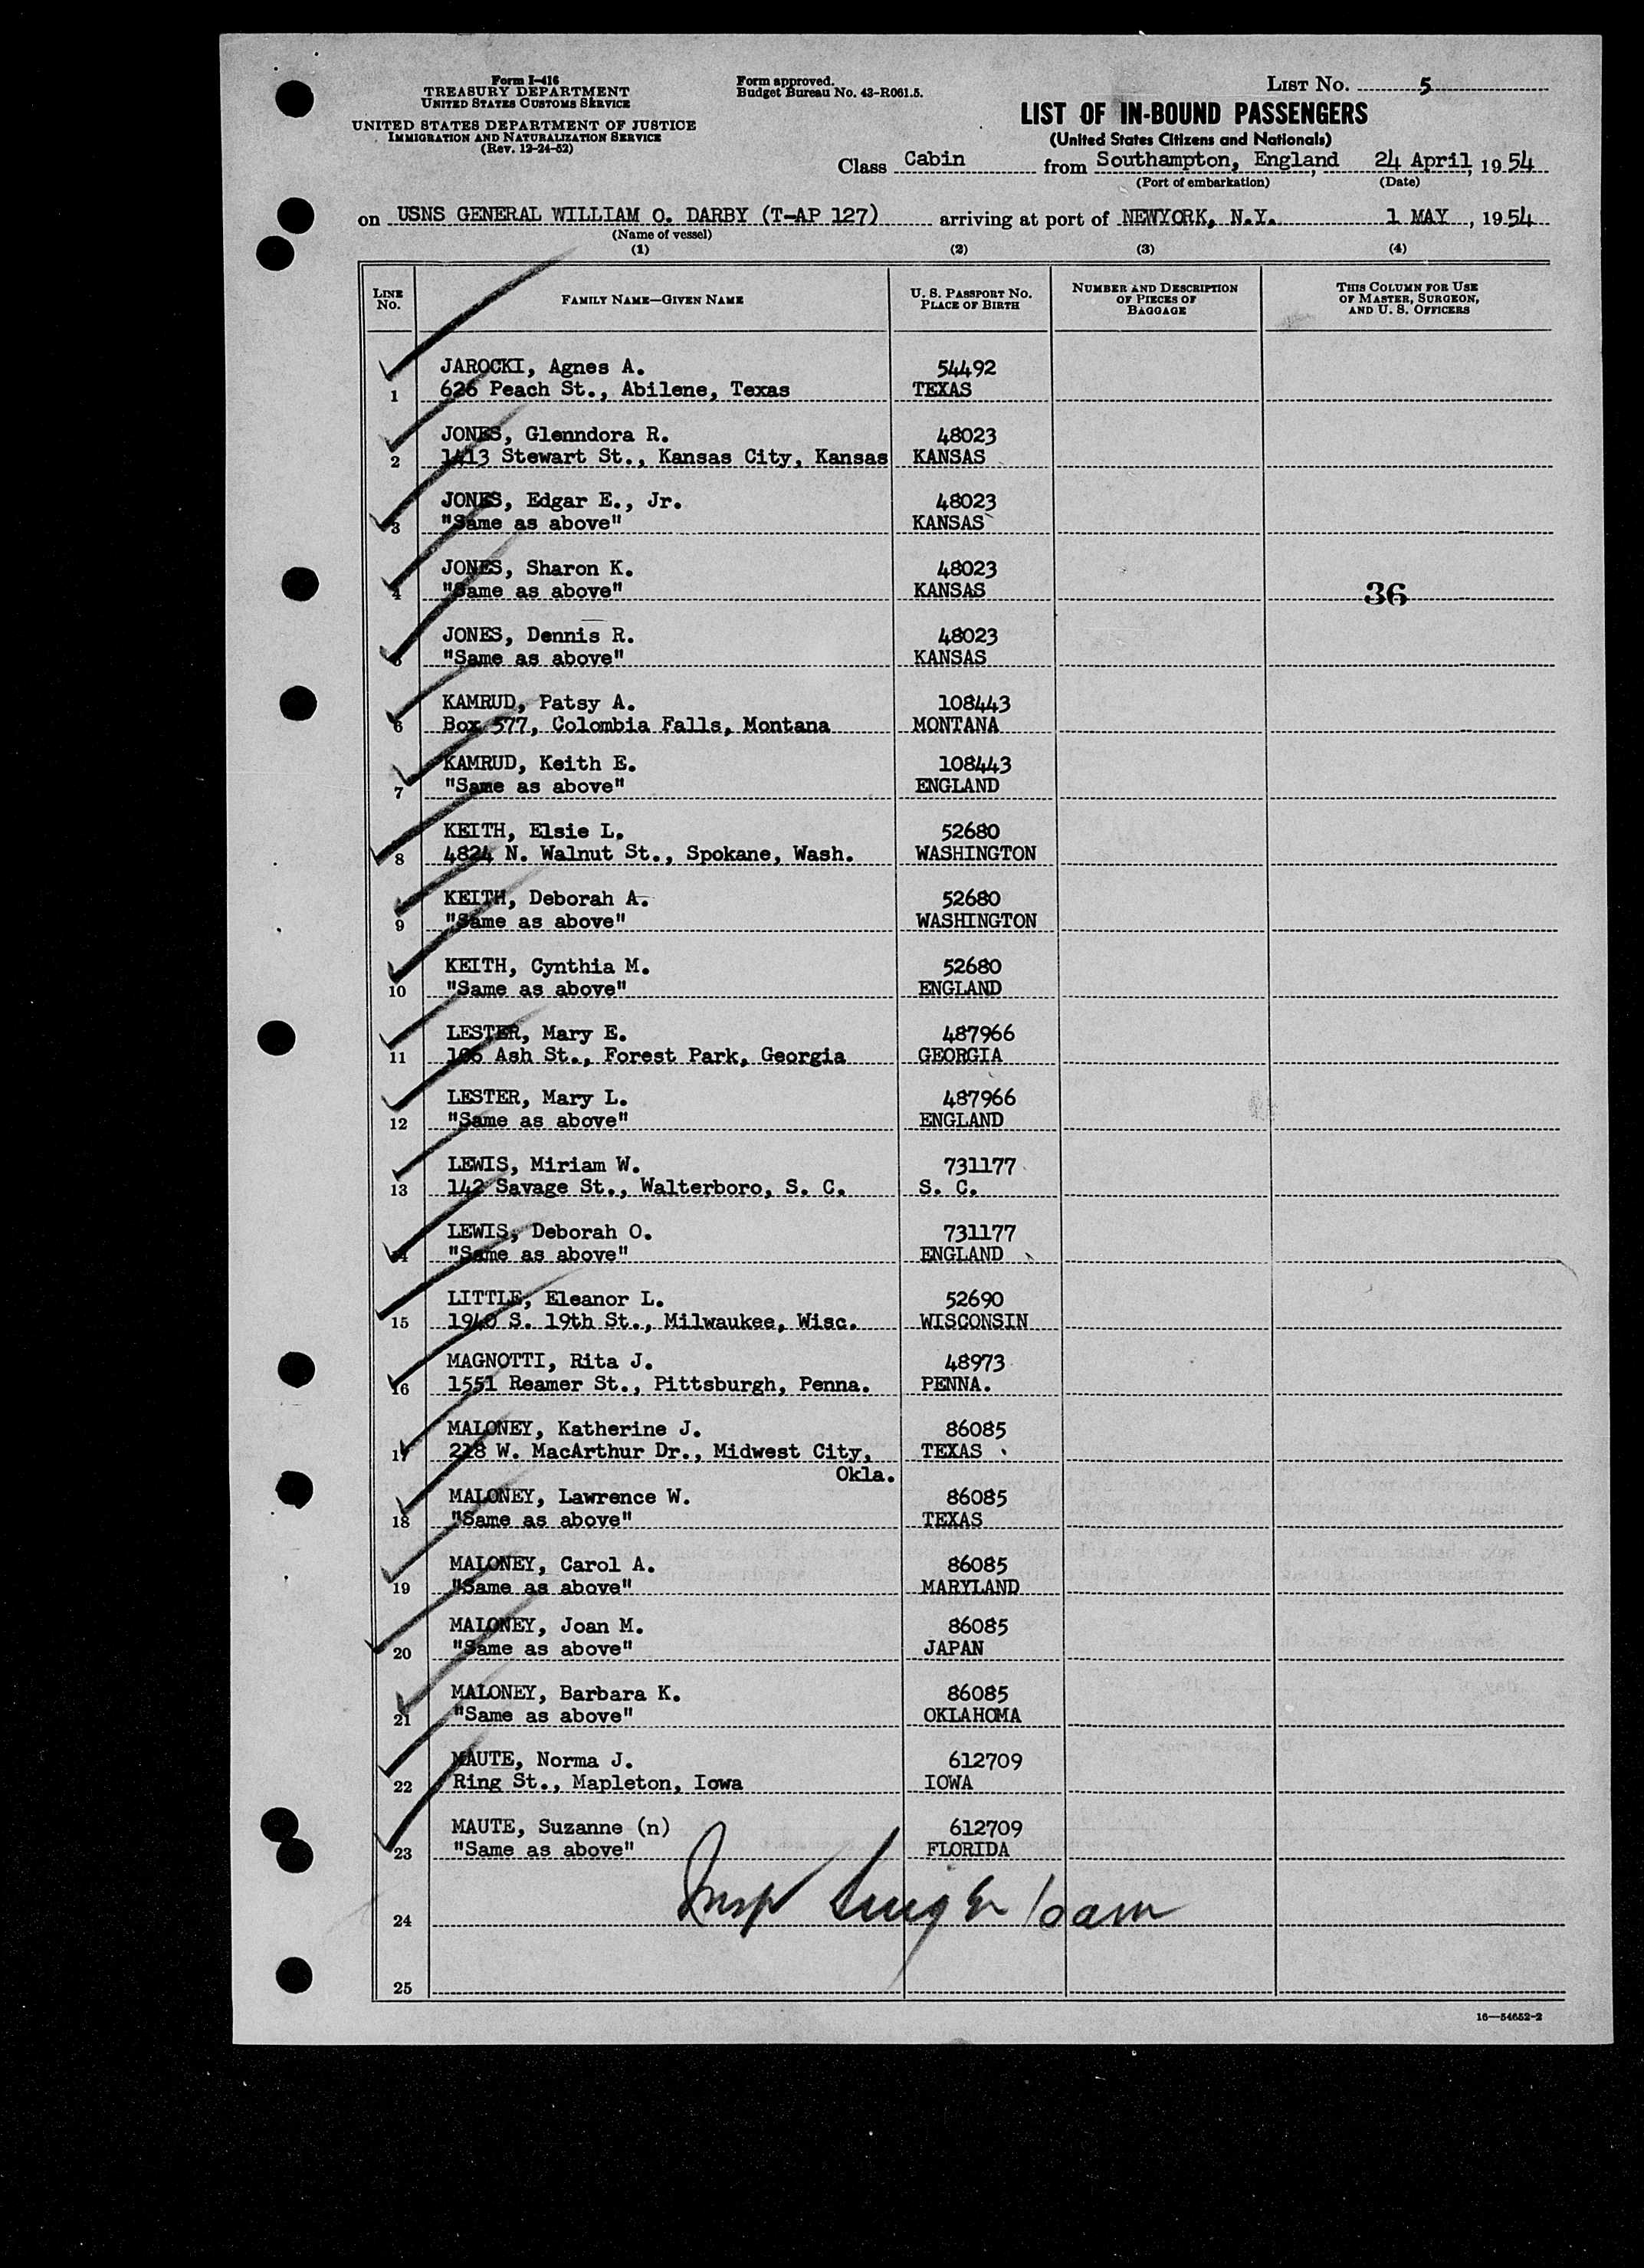 Form I-416
TREASURY DEPARTMENT
UNITED STATES CUSTOMS SERVICE
UNITED STATES DEPARTMENT OF JUSTICE
IMMIGRATION AND NATURALIZATION SERVICE
(Rev. 12-24-52)
Form approved.
Budget Bureau No. 43-R061.5.
LIST NO. 5
LIST OF IN-BOUND PASSENGERS
(United States Citizens and Nationals)
Class Cabin from Southampton, England, 24 April, 1954
(Port of embarkation) (Date)
on USNS GENERAL WILLIAM O. DARBY (T-AP 127) arriving at port of NEWYORK, N.Y. 1 MAY, 1954
(Name of vessel)
(1) (2) (3) (4)
LINE NO. FAMILY NAME—GIVEN NAME U. S. PASSPORT NO. PLACE OF BIRTH NUMBER AND DESCRIPTION OF PIECES OF BAGGAGE THIS COLUMN FOR USE OF MASTER, SURGEON, AND U. S. OFFICERS
JAROCKI, Agnes A. 54492
1 626 Peach St., Abilene, Texas TEXAS
JONES, Glenndora R. 48023
2 1413 Stewart St., Kansas City, Kansas KANSAS
JONES, Edgar E., Jr. 48023
3 "Same as above" KANSAS
JONES, Sharon K. 48023
4 "Same as above" KANSAS 36
JONES, Dennis R. 48023
5 "Same as above" KANSAS
KAMRUD, Patsy A. 108443
6 Box 577, Colombia Falls, Montana MONTANA
KAMRUD, Keith E. 108443
7 "Same as above" ENGLAND
KEITH, Elsie L. 52680
8 4824 N. Walnut St., Spokane, Wash. WASHINGTON
KEITH, Deborah A. 52680
9 "Same as above" WASHINGTON
KEITH, Cynthia M. 52680
10 "Same as above" ENGLAND
LESTER, Mary E. 487966
11 106 Ash St., Forest Park, Georgia GEORGIA
LESTER, Mary L. 487966
12 "Same as above" ENGLAND
LEWIS, Miriam W. 731177
13 142 Savage St., Walterboro, S. C. S. C.
LEWIS, Deborah O. 731177
14 "Same as above" ENGLAND
LITTLE, Eleanor L. 52690
15 1940 S. 19th St., Milwaukee, Wisc. WISCONSIN
MAGNOTTI, Rita J. 48973
16 1551 Reamer St., Pittsburgh, Penna. PENNA.
MALONEY, Katherine J. 86085
17 218 W. MacArthur Dr., Midwest City, TEXAS
Okla.
MALONEY, Lawrence W. 86085
18 "Same as above" TEXAS
MALONEY, Carol A. 86085
19 "Same as above" MARYLAND
MALONEY, Joan M. 86085
20 "Same as above" JAPAN
MALONEY, Barbara K. 86085
21 "Same as above" OKLAHOMA
MAUTE, Norma J. 612709
22 Ring St., Mapleton, Iowa IOWA
MAUTE, Suzanne (n) 612709
23 "Same as above" FLORIDA
Insp
24
25
16—54652-2